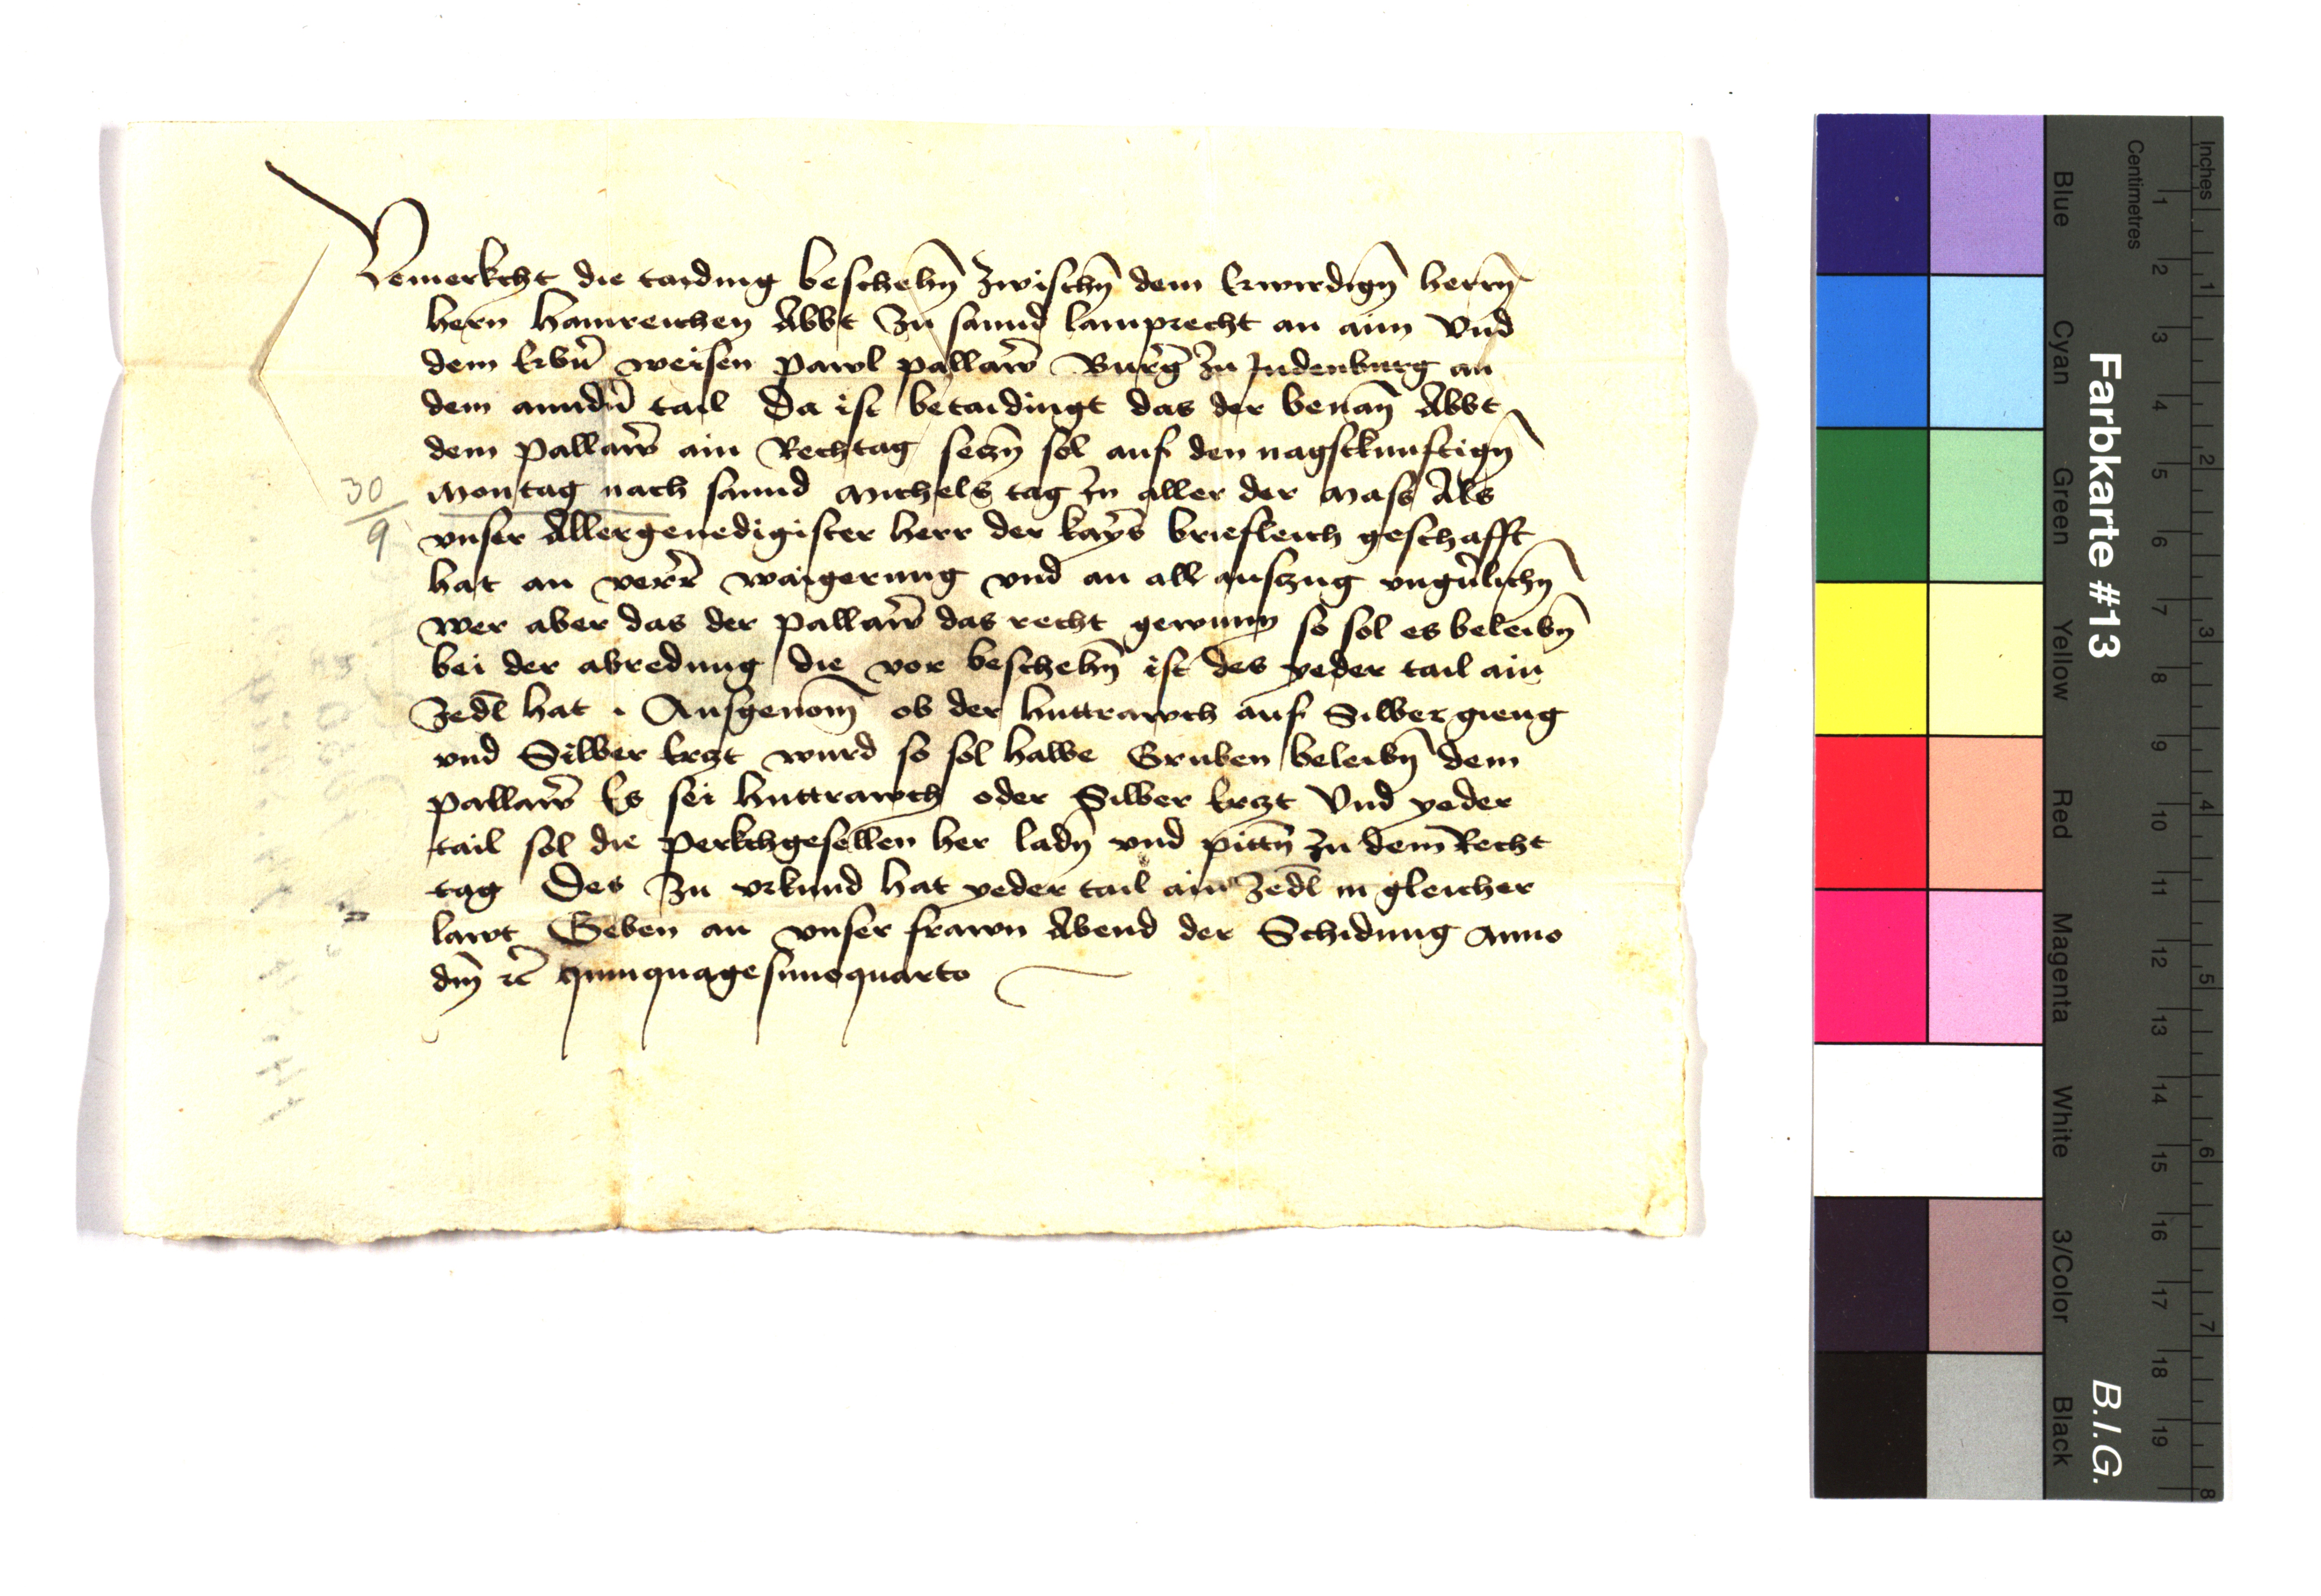 Vemerkcht die taiding beschehn̄ zwischn̄ dem Erwirdign̄ herrn̄
hern hainreichen Abbt zu sannd lamprecht an aim Vnd
dem Erbn̄ weisen pawl pallaw̄ Burḡ zu Judenburg an
dem anndn̄ tail Da ist betaidingt das der benan̄ Abbt
dem pallaw̄ ain Rechtag seczn̄ sol auf den nagstkunftign̄
30/9 Montag nach sannd Michels tag In aller der mass Als
vnser Allergenedigister herr der kays̄ briefleich geschafft
hat an verr̄ waigerung vnd an all auszug vngūlichn̄
wer aber das der pallaw̄ das recht gewunn so sol es beleibn̄
bei der abredung die vor beschehn̄ ist des yeder tail ain
zedl̄ hat . Ausgenom̄ ob der huttrawch auf Silber gieng
vnd Silber Erczt wurd so sol halbe Gruben beleibn̄ dem
pallaw̄ Es sei huttrawch oder Silber Erczt Vnd yeder
tail sol die perkchgesellen her ladn̄ vnd pittn̄ zu dem Recht
tag Des zu vrkund hat yeder tail ain zedl̄ in gleicher
lawt Geben an vnser frawn Abend der Schidung Anno
dm̄ ⁊c̄ quinquagesimoquarto
Farbkarte #13
B.I.G.
Blue Cyan Green Yellow Red Magenta White 3/Color Black
Centimetres 1 2 3 4 5 6 7 8 9 10 11 12 13 14 15 16 17 18 19
Inches 1 2 3 4 5 6 7 8